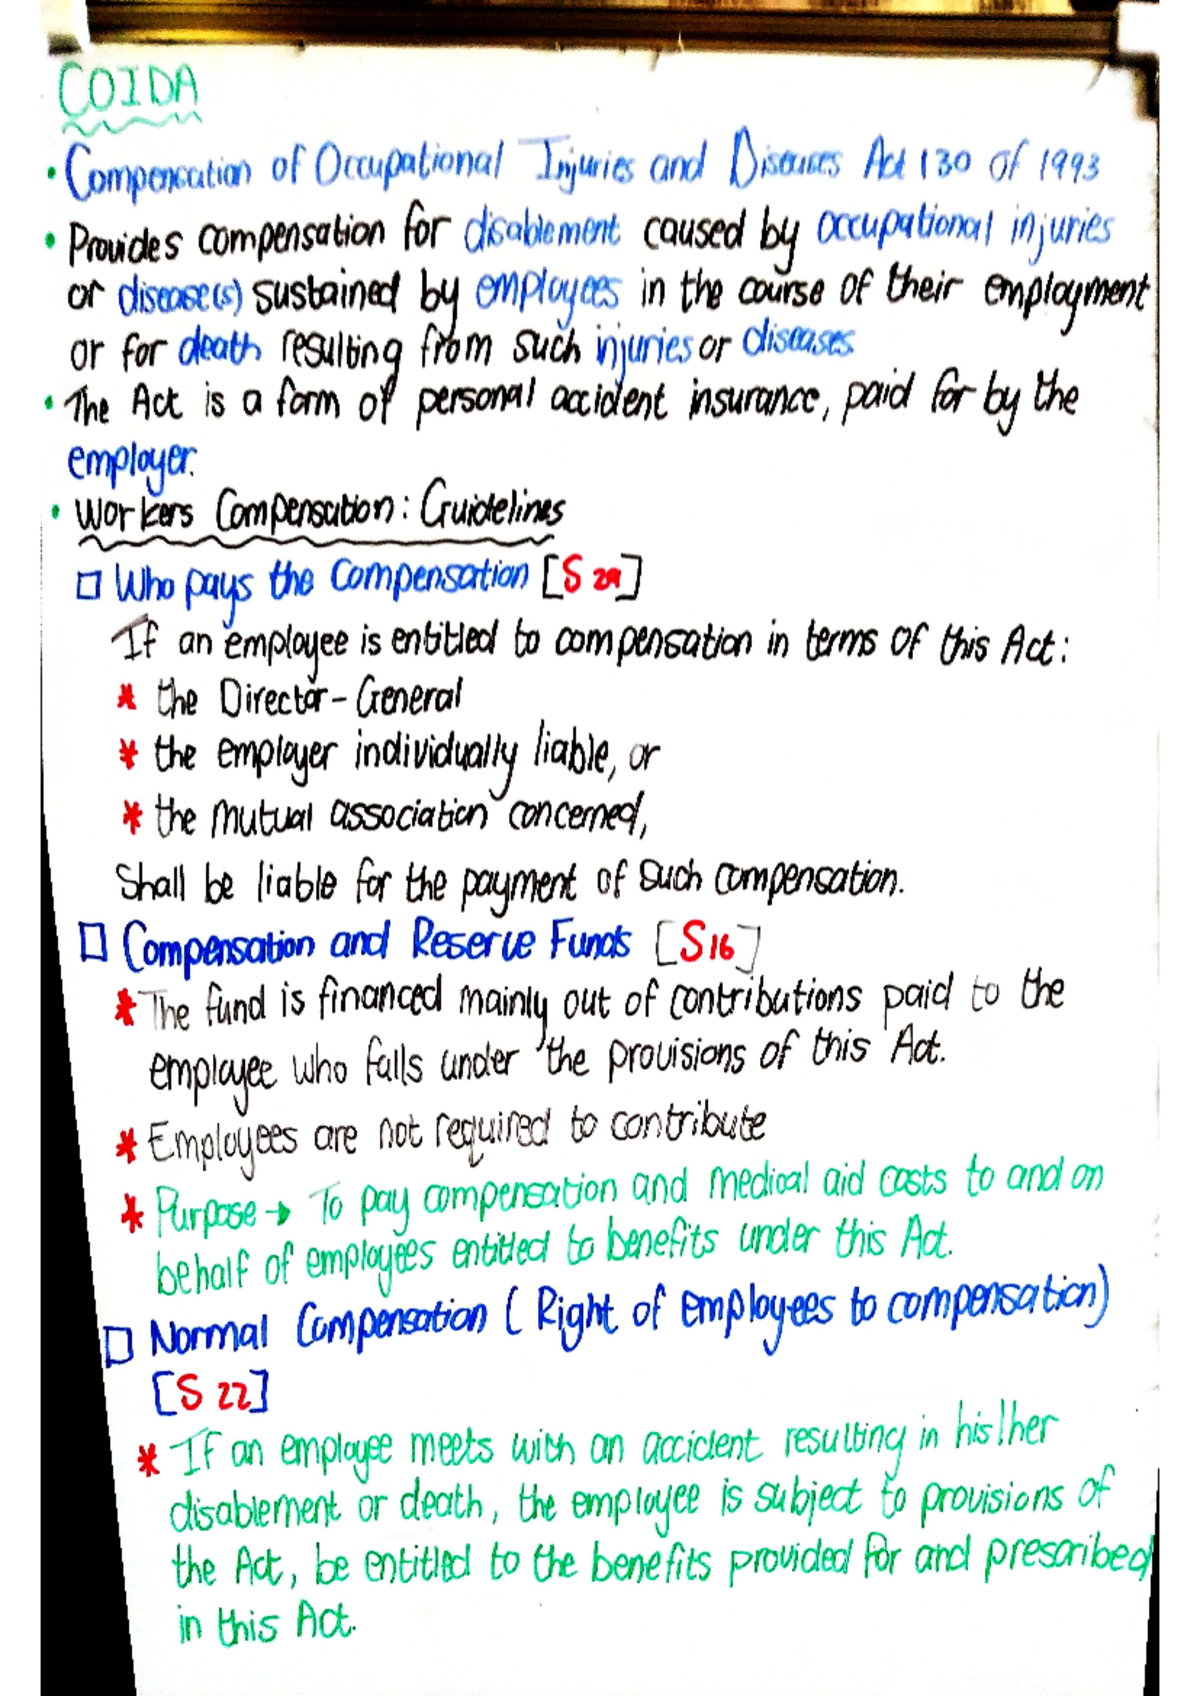 COIDA
• Compensation of Occupational Injuries and Diseases Act 130 of 1993
• Provides compensation for disablement caused by occupational injuries
or disease(s) sustained by employees in the course of their employment
or for death resulting from such injuries or diseases
• The Act is a form of personal accident insurance, paid for by the
employer.
• Workers Compensation: Guidelines
□ Who pays the Compensation [S 29]
If an employee is entitled to compensation in terms of this Act:
* the Director-General
* the employer individually liable, or
* the mutual association concerned,
Shall be liable for the payment of such compensation.
□ Compensation and Reserve Funds [S16]
* The fund is financed mainly out of contributions paid to the
employee who falls under the provisions of this Act.
* Employees are not required to contribute
* Purpose → To pay compensation and medical aid costs to and on
behalf of employees entitled to benefits under this Act.
□ Normal Compensation (Right of employees to compensation)
[S 22]
* If an employee meets with an accident resulting in his/her
disablement or death, the employee is subject to provisions of
the Act, be entitled to the benefits provided for and prescribed
in this Act.